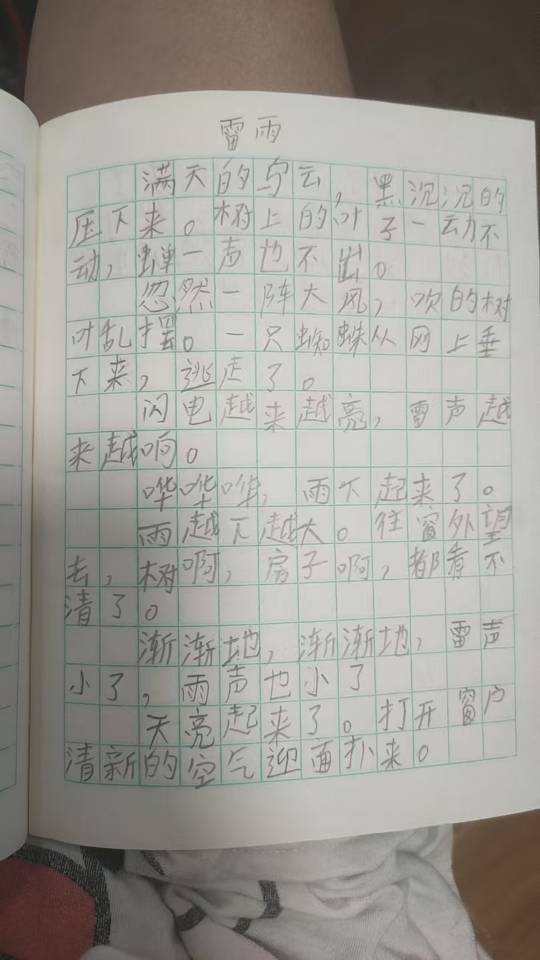 雷雨
满天的乌云，黑沉沉的
压下来。树上的叶子一动不
动，蝉一声也不出。
忽然一阵大风，吹的树
叶乱摆。一只蜘蛛从网上垂
下来，逃走了。
闪电越来越亮，雷声越
来越响。
哗哗哗，雨下起来了。
雨越下越大。往窗外望
去，树啊，房子啊，都看不
清了。
渐渐地，渐渐地，雷声
小了，雨声也小了
天亮起来了。打开窗户
清新的空气迎面扑来。